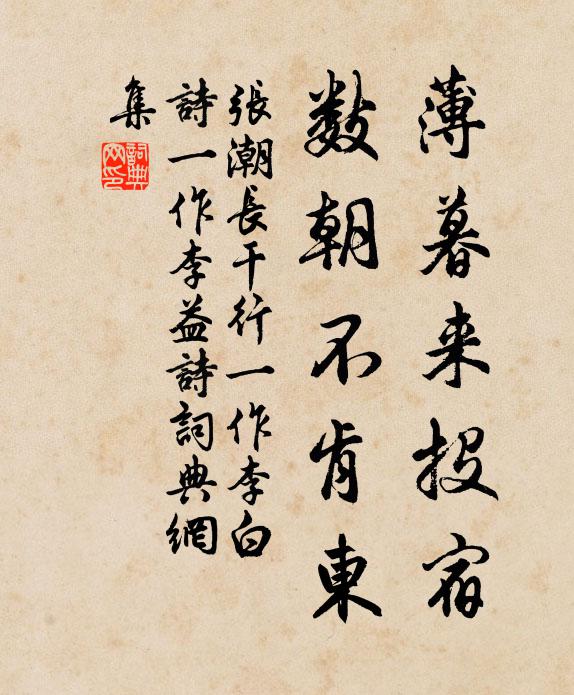 薄暮来投宿
数朝不肯東
張潮長干行一作李白
詩一作李益詩詞典網
集
詞典網印